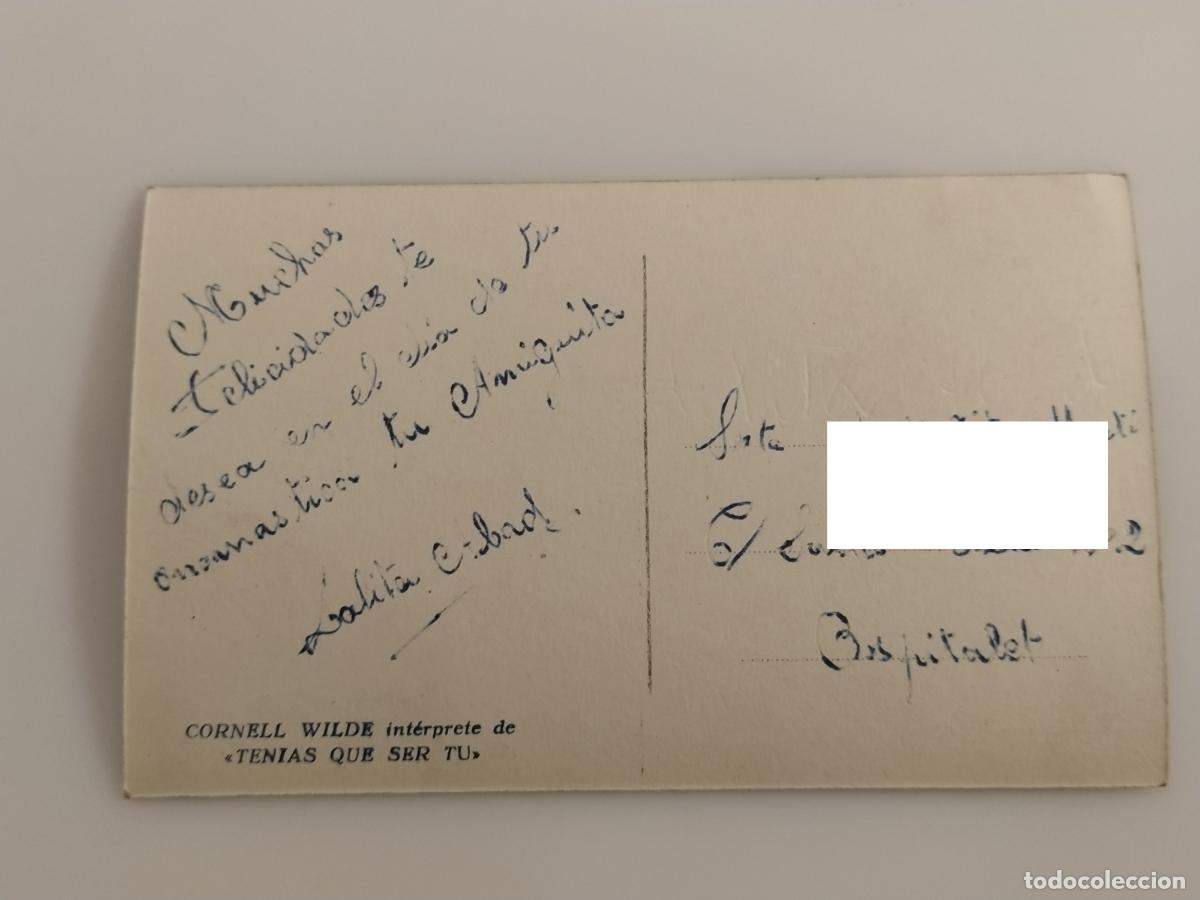 Muchas
Felicidades te
desea en el dia de tu
onomastica tu Amiguita
Lolita
CORNELL WILDE intérprete de
«TENIAS QUE SER TU»
Srta
C/
Ospitalet
todocoleccion